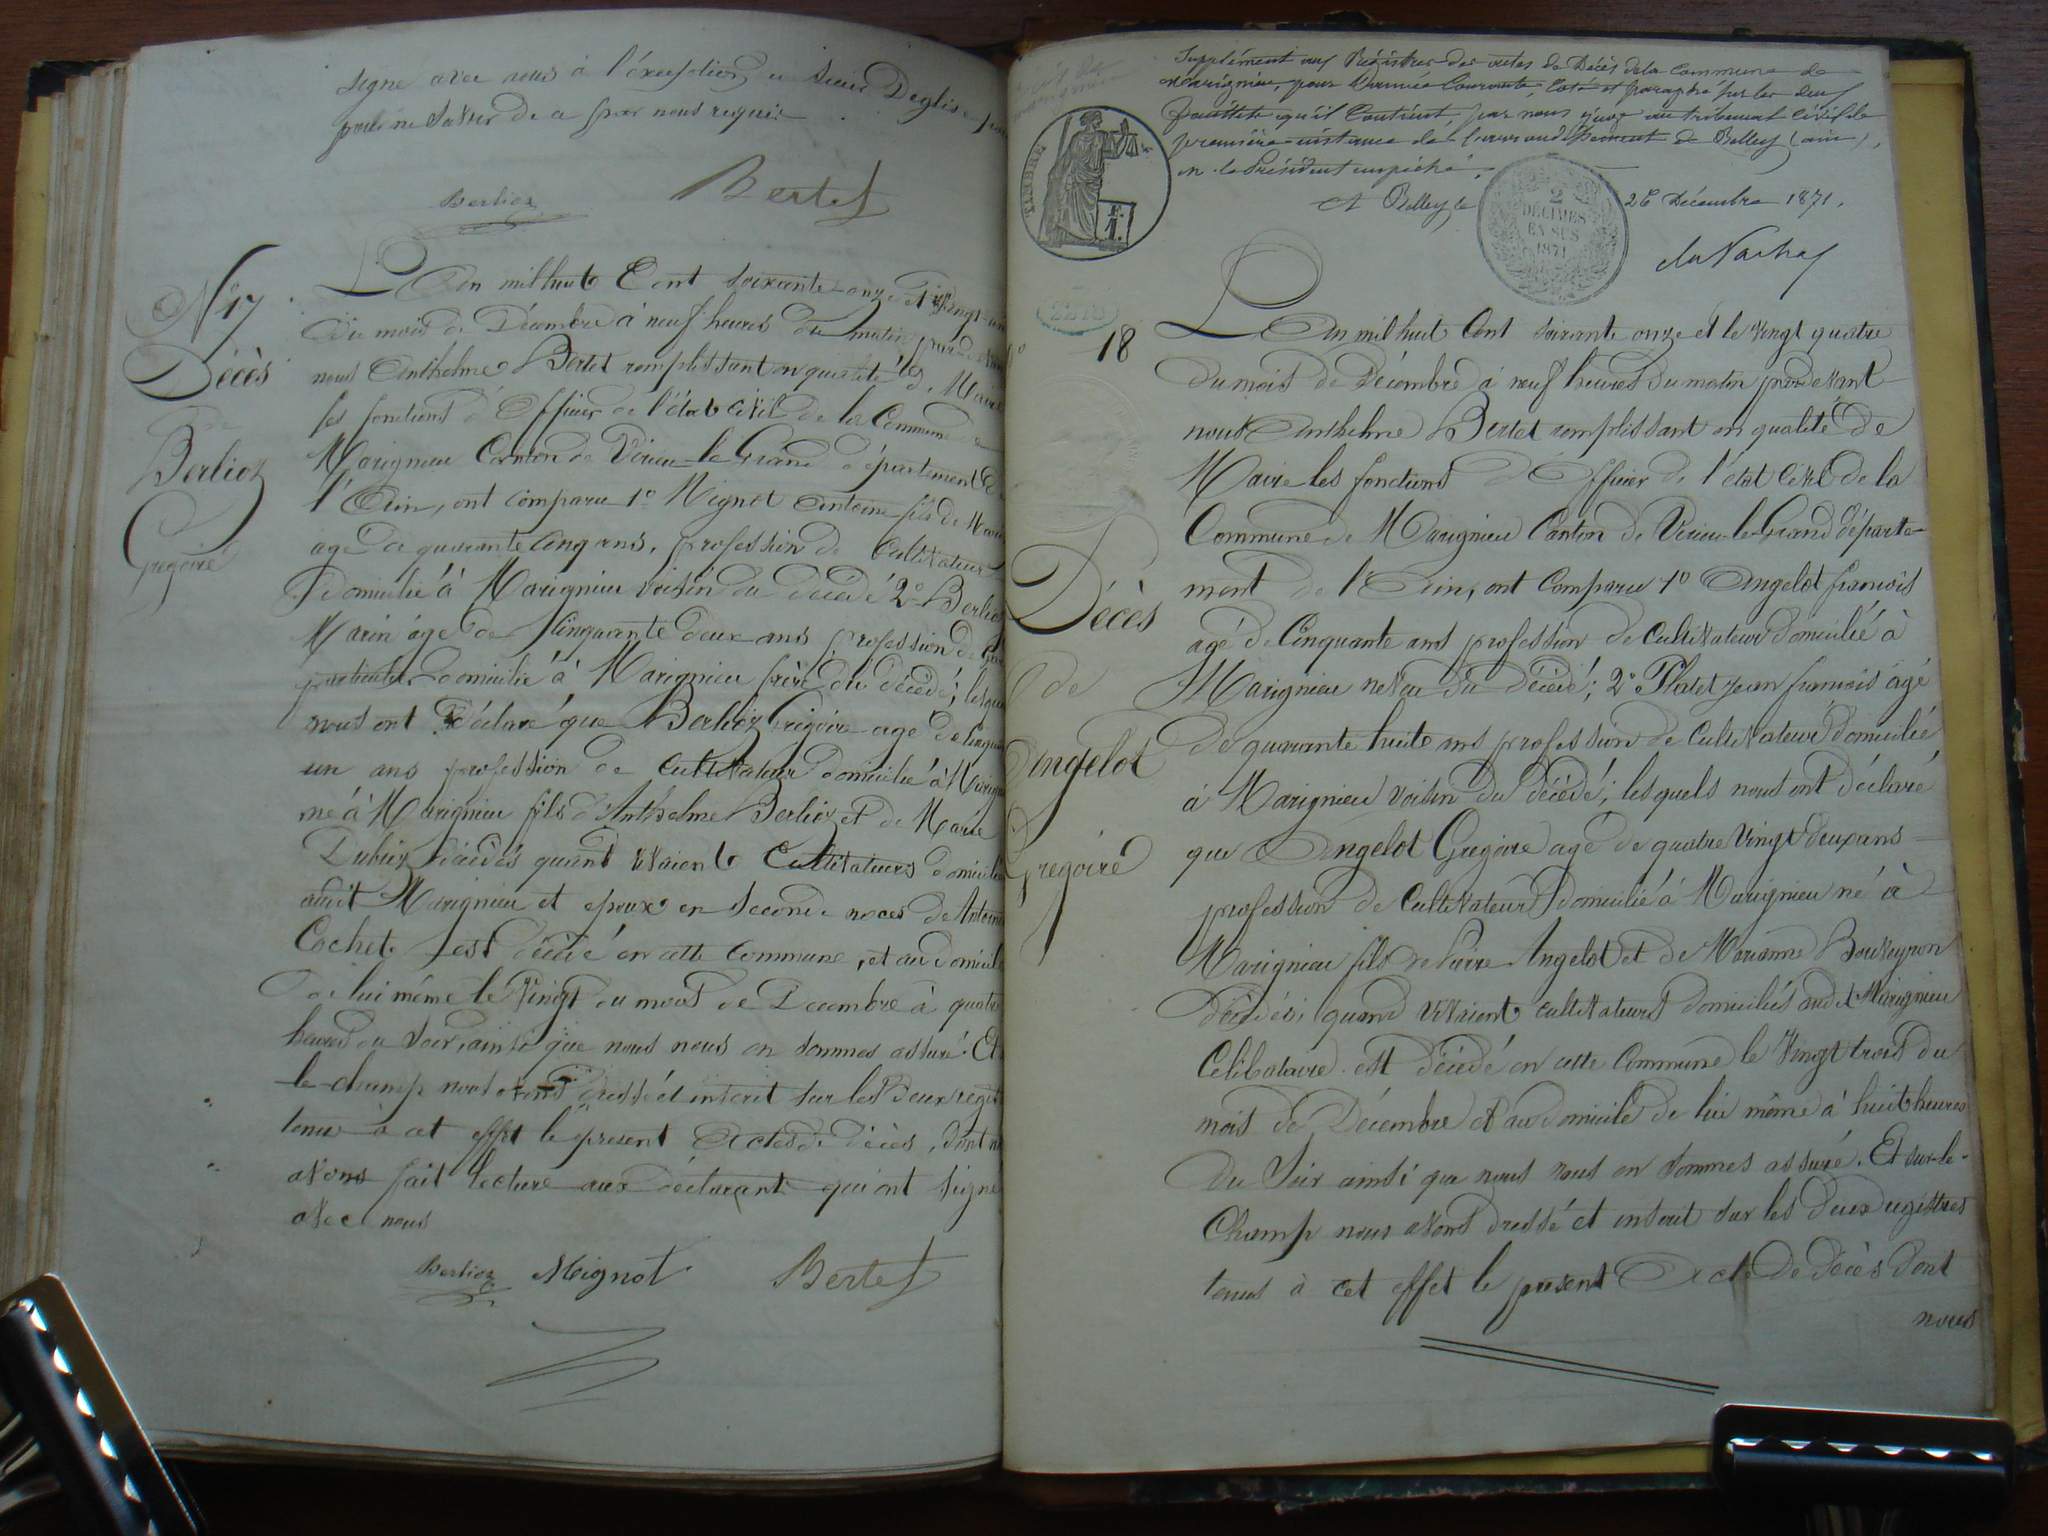 signé avec nous à l'exception
pour ne savoir de ce par nous requis
Berlioz Bertet
N° 17
Décès
Berlioz
Gregoire
L'an mil huit Cent soixante onze et le Vingt-un
du mois de Décembre à neuf heures du matin
nous Anthelme Bertet remplissant en qualité de Maire
les fonctions d'Officier de l'état civil de la Commune de
Marignieu Canton de Virieu-le-Grand département de
l'Ain, ont comparu 1° Mignot Antoine fils de
agé de quarante cinq ans, profession de Cultivateur
domicilié à Marignieu voisin du décédé 2° Berlioz
Marin âgé de Cinquante deux ans profession de
domicilié à Marignieu frère du décédé; lesquels
nous ont déclaré que Berlioz Grégoire agé de
un ans profession de Cultivateur domicilié à
né à Marignieu fils d'Anthelme Berlioz et de Marie
décédés quand vivaient Cultivateurs
audit Marignieu et epoux en seconde noces de
Cochet est décédé en cette commune, et au domicile
de lui même le Vingt du mois de Decembre à quatre
heures du soir, ainsi que nous nous en sommes assuré. Et
le-champ nous avons dressé et inscrit sur les deux
tenus à cet effet le present Actes de décès, dont
avons fait lecture aux déclarants qui ont signé
avec nous
Berlioz Mignot Bertet
Supplément aux Régistres des actes de Décès de la Commune de
Marignieu, pour l'année Courante, Coté et paraphé sur les deux
feuillets qu'il Contient, par nous juge au tribunal civil de
première instance de l'arrondissement de Belley (ain),
M. le Président empêché.
A Belley le 26 Décembre 1871.
TIMBRE
2
DÉCIMES
EN SUS
1871
18
Décès
de
Angelot
Gregoire
L'an mil huit Cent soixante onze et le vingt quatre
du mois de Décembre à neuf heures du matin pardevant
nous Anthelme Bertet remplissant en qualité de
Maire les fonctions d'Officier de l'état civil de la
Commune de Marignieu Canton de Virieu-le-Grand départe-
ment de l'Ain, ont comparu 1° Angelot francois
agé de Cinquante ans profession de Cultivateur domicilié à
Marignieu neveu du décédé; 2° Platet Jean francois âgé
de quarante huite ans profession de Cultivateur domicilié
à Marignieu voisin du décédé; lesquels nous ont déclaré
que Angelot Gregoire agé de quatre Vingt deux ans
profession de Cultivateur domicilié à Marignieu né à
Marignieu fils de Pierre Angelot et de Marianne Bouveyron
décédés, quand vivaient cultivateurs domiciliés audit Marignieu
Célibataire. est décédé en cette Commune le Vingt trois du
mois de Décembre et au domicile de lui même à huit heures
du Soir ainsi que nous nous en sommes assuré. Et sur-le-
Champ nous avons dressé et inscrit sur les deux registres
tenus à cet effet le present Acte De Décès dont
nous